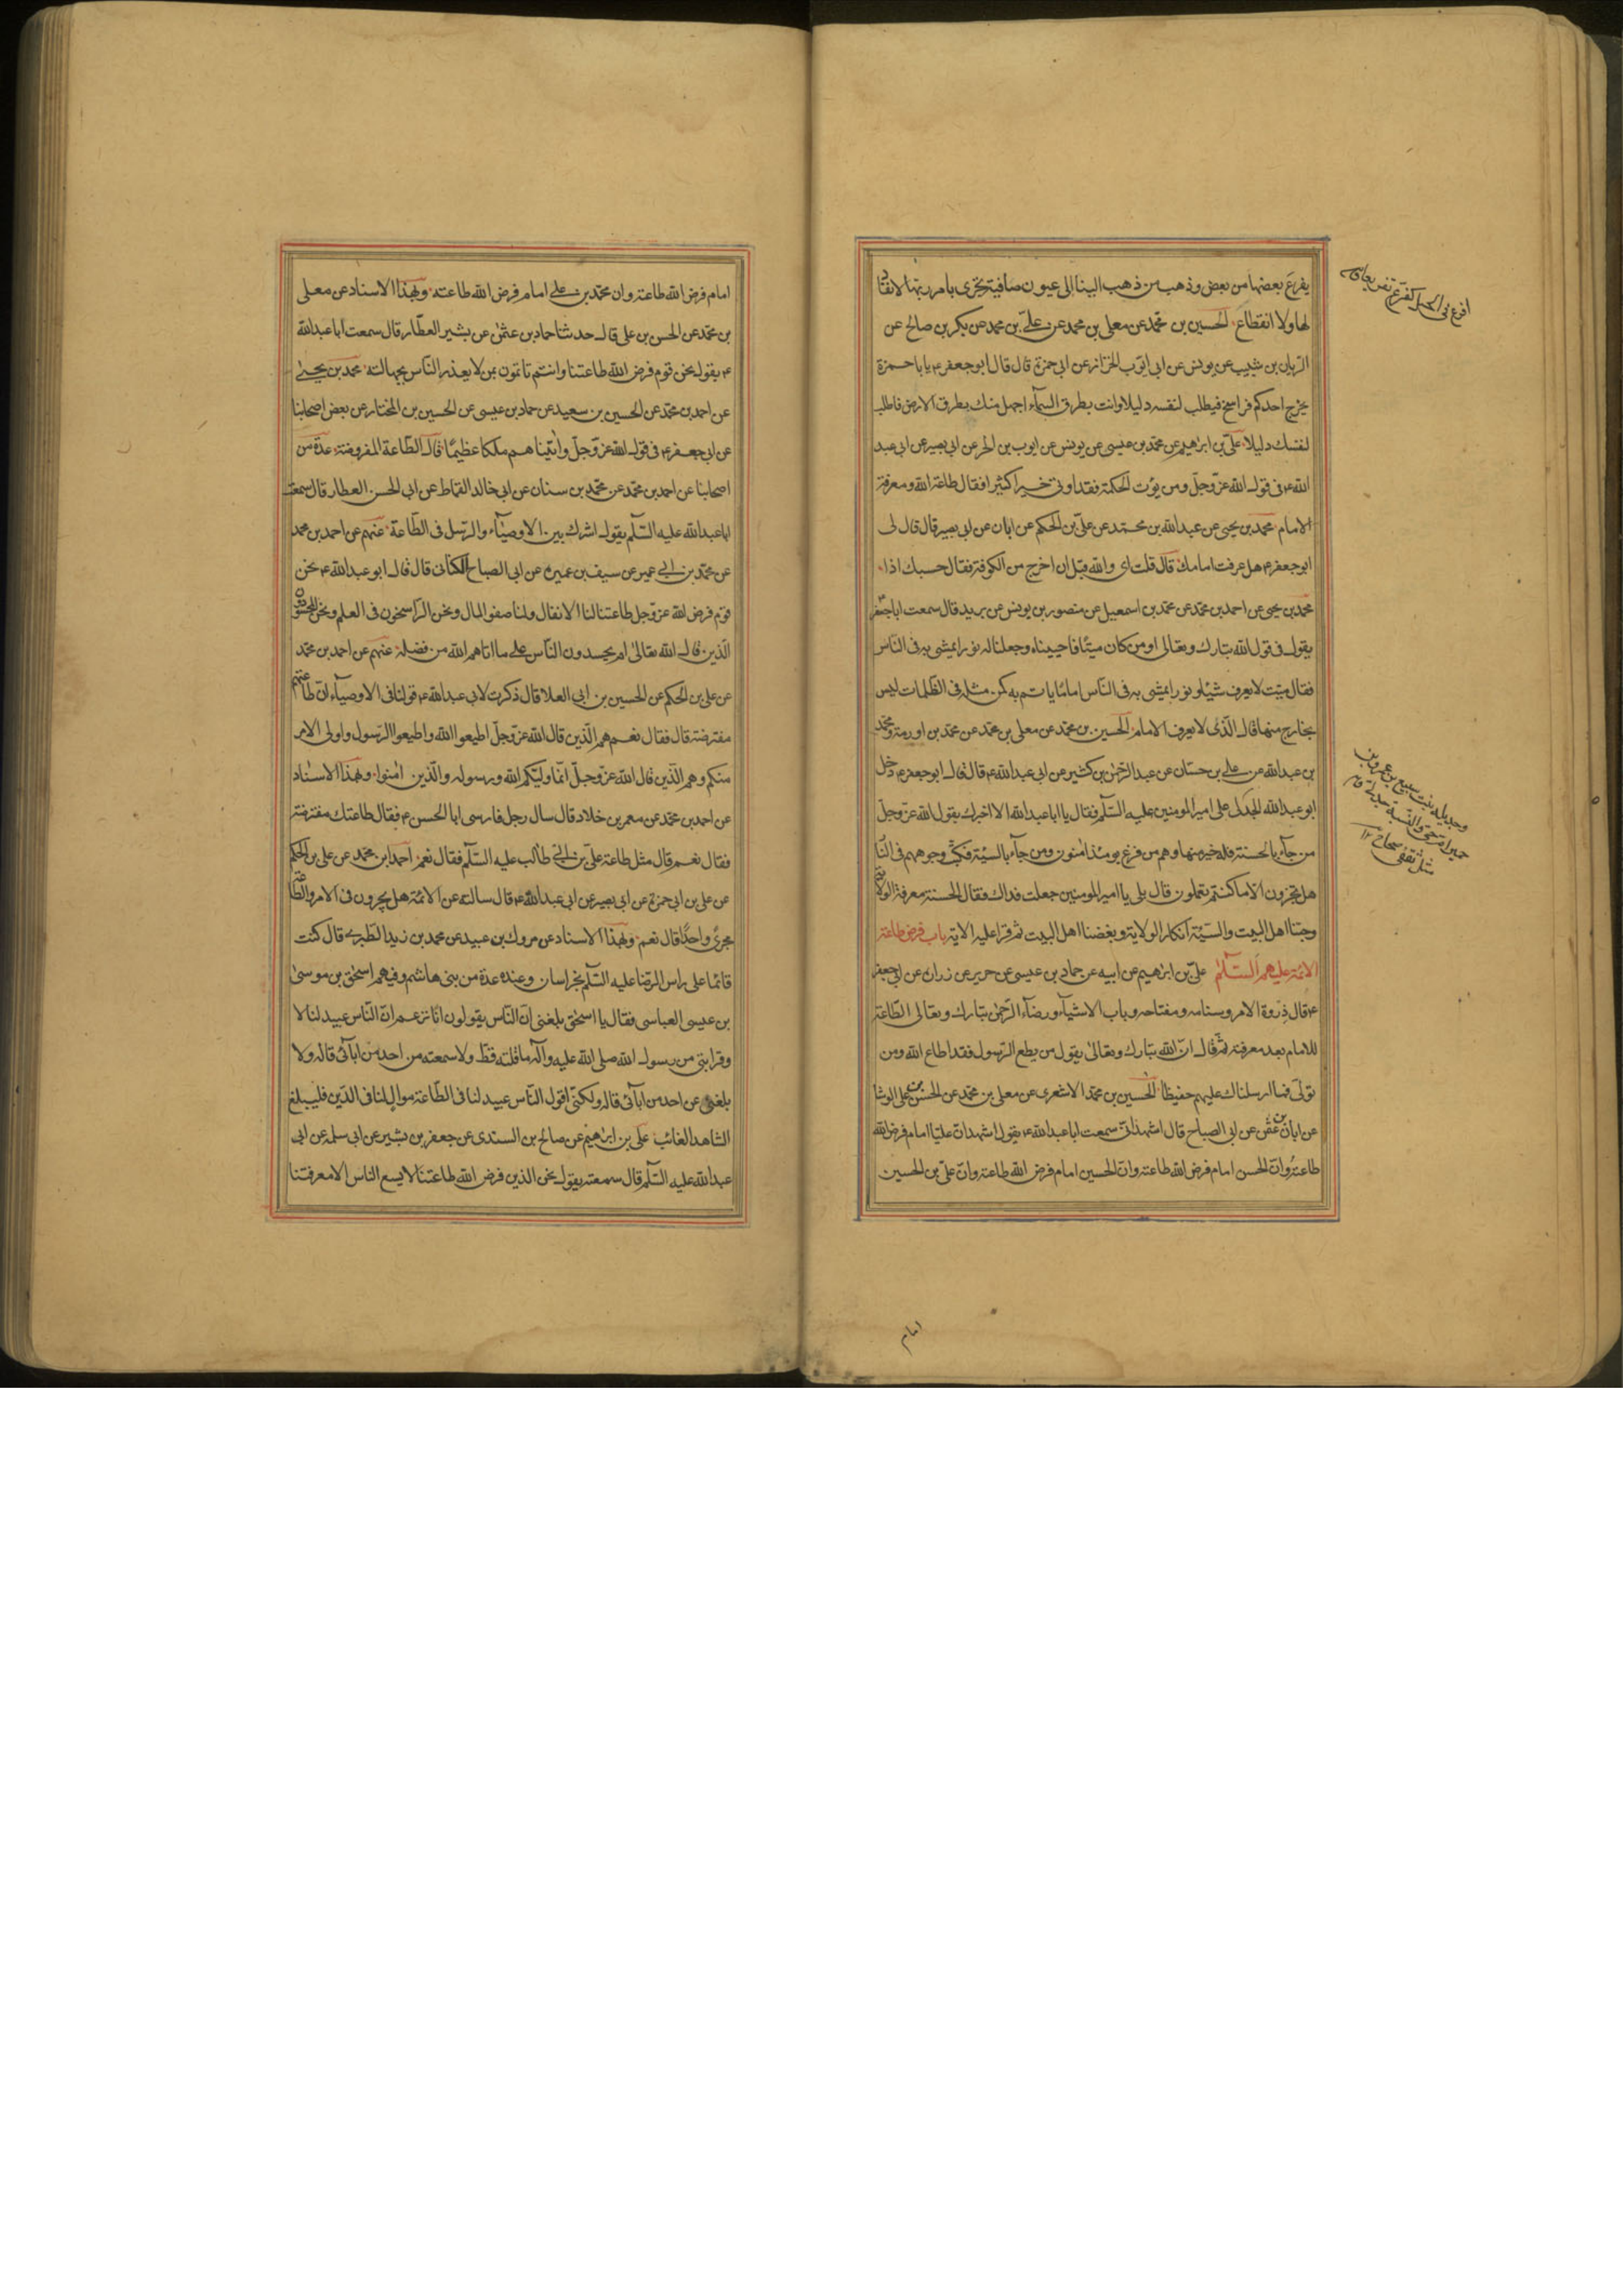 يفرغ بعضها من بعض وذهب من ذهب الينا الى عيون صافية تجرى بامر ربها لا نفاد
لها ولا انقطاع الحسين بن محمد عن معلى بن محمد عن على بن محمد عن بكر بن صالح عن
الريان بن شبيب عن يونس عن ابى ايوب الخزاز عن ابى حمزة قال قال ابو جعفر ع يابا حمزة
يخرج احدكم فراسخ فيطلب لنفسه دليلا وانت بطرق السمآء اجهل منك بطرق الارض فاطلب
لنفسك دليلا على بن ابرهيم عن محمد بن عيسى عن يونس عن ايوب بن الحر عن ابى بصير عن ابى عبد
الله ع فى قول الله عز وجل ومن يؤت الحكمة فقد اوتى خيرا كثيرا فقال طاعة الله ومعرفة
الامام محمد بن يحيى عن عبد الله بن محمد عن على بن الحكم عن ابان عن ابى بصير قال قال لى
ابو جعفر ع هل عرفت امامك قال قلت اى والله قبل ان اخرج من الكوفة فقال حسبك اذا
محمد بن يحيى عن احمد بن محمد عن محمد بن اسمعيل عن منصور بن يونس عن بريد قال سمعت ابا جعفر
يقول فى قول الله تبارك وتعالى اومن كان ميتا فاحييناه وجعلنا له نورا يمشى به فى الناس
فقال ميت لا يعرف شيئا ونورا يمشى به فى الناس اماما ياتم به كمن مثله فى الظلمات ليس
بخارج منها قال الذى لا يعرف الامام الحسين بن محمد عن معلى بن محمد عن محمد بن اورمة ومحمد
بن عبد الله عن على بن حسان عن عبد الرحمن بن كثير عن ابى عبد الله ع قال قال ابو جعفر ع دخل
ابو عبد الله الجدلى على امير المومنين عليه السلم فقال يا ابا عبد الله الا اخبرك بقول الله عز وجل
من جآء بالحسنة فله خير منها وهم من فزع يومئذ امنون ومن جآء بالسيئة فكبت وجوههم فى النار
هل تجزون الا ما كنتم تعملون قال بلى يا امير المومنين جعلت فداك فقال الحسنة معرفة الولاية
وحبنا اهل البيت والسيئة انكار الولاية وبغضنا اهل البيت ثم قرا عليه الاية باب فرض طاعة
الائمة عليهم السلم على بن ابرهيم عن ابيه عن حماد بن عيسى عن حريز عن زرارة عن ابى جعفر
ع قال ذروة الامر وسنامه ومفتاحه وباب الاشيآء ورضآء الرحمن تبارك وتعالى الطاعة
للامام بعد معرفته ثم قال ان الله تبارك وتعالى يقول من يطع الرسول فقد اطاع الله ومن
تولى فما ارسلناك عليهم حفيظا الحسين بن محمد الاشعرى عن معلى بن محمد عن الحسن بن على الوشا
عن ابان بن عثمن عن ابى الصباح قال اشهد انى سمعت ابا عبد الله ع يقول اشهد ان عليا امام فرض الله
طاعته وان الحسن امام فرض الله طاعته وان الحسين امام فرض الله طاعته وان على بن الحسين
امام
امام فرض الله طاعته وان محمد بن على امام فرض الله طاعته وبهذا الاسناد عن معلى
بن محمد عن الحسن بن على قال حدثنا حماد بن عثمن عن بشير العطار قال سمعت ابا عبد الله
ع يقول نحن قوم فرض الله طاعتنا وانتم تاتمون بمن لا يعذر الناس بجهالته محمد بن يحيى
عن احمد بن محمد عن الحسين بن سعيد عن حماد بن عيسى عن الحسين بن المختار عن بعض اصحابنا
عن ابى جعفر ع فى قول الله عز وجل واتيناهم ملكا عظيما قال الطاعة المفروضة عدة من
اصحابنا عن احمد بن محمد عن محمد بن سنان عن ابى خالد القماط عن ابى الحسن العطار قال سمعت
ابا عبد الله عليه السلم يقول اشرك بين الاوصيآء والرسل فى الطاعة عنهم عن احمد بن محمد
عن محمد بن ابى عمير عن سيف بن عميرة عن ابى الصباح الكنانى قال قال ابو عبد الله ع نحن
قوم فرض الله عز وجل طاعتنا لنا الانفال ولنا صفو المال ونحن الراسخون فى العلم ونحن المحسودون
الذين قال الله تعالى ام يحسدون الناس على ما اتاهم الله من فضله عنهم عن احمد بن محمد
عن على بن الحكم عن الحسين بن ابى العلا قال ذكرت لابى عبد الله ع قولنا فى الاوصيآء ان طاعتهم
مفترضة قال فقال نعم هم الذين قال الله عز وجل اطيعوا الله واطيعوا الرسول واولى الامر
منكم وهم الذين قال الله عز وجل انما وليكم الله ورسوله والذين امنوا وبهذا الاسناد
عن احمد بن محمد عن معمر بن خلاد قال سال رجل فارسى ابا الحسن ع فقال طاعتك مفترضة
فقال نعم قال مثل طاعة على بن ابى طالب عليه السلم فقال نعم احمد بن محمد عن على بن الحكم
عن على بن ابى حمزة عن ابى بصير عن ابى عبد الله ع قال سالته عن الائمة هل يجرون فى الامر والطاعة
مجرى واحدا قال نعم وبهذا الاسناد عن مروك بن عبيد عن محمد بن زيد الطبرى قال كنت
قائما على راس الرضا عليه السلم بخراسان وعنده عدة من بنى هاشم وفيهم اسحق بن موسى
بن عيسى العباسى فقال يا اسحق بلغنى ان الناس يقولون انا نزعم ان الناس عبيد لنا لا
وقرابتى من رسول الله صلى الله عليه وآله ما قلته قط ولا سمعته من احد من ابآئى قاله ولا
بلغنى عن احد من ابآئى قاله ولكنى اقول الناس عبيد لنا فى الطاعة موال لنا فى الدين فليبلغ
الشاهد الغائب على بن ابرهيم عن صالح بن السندى عن جعفر بن بشير عن ابى سلمه عن ابى
عبد الله عليه السلم قال سمعته يقول نحن الذين فرض الله طاعتنا لا يسع الناس الا معرفتنا